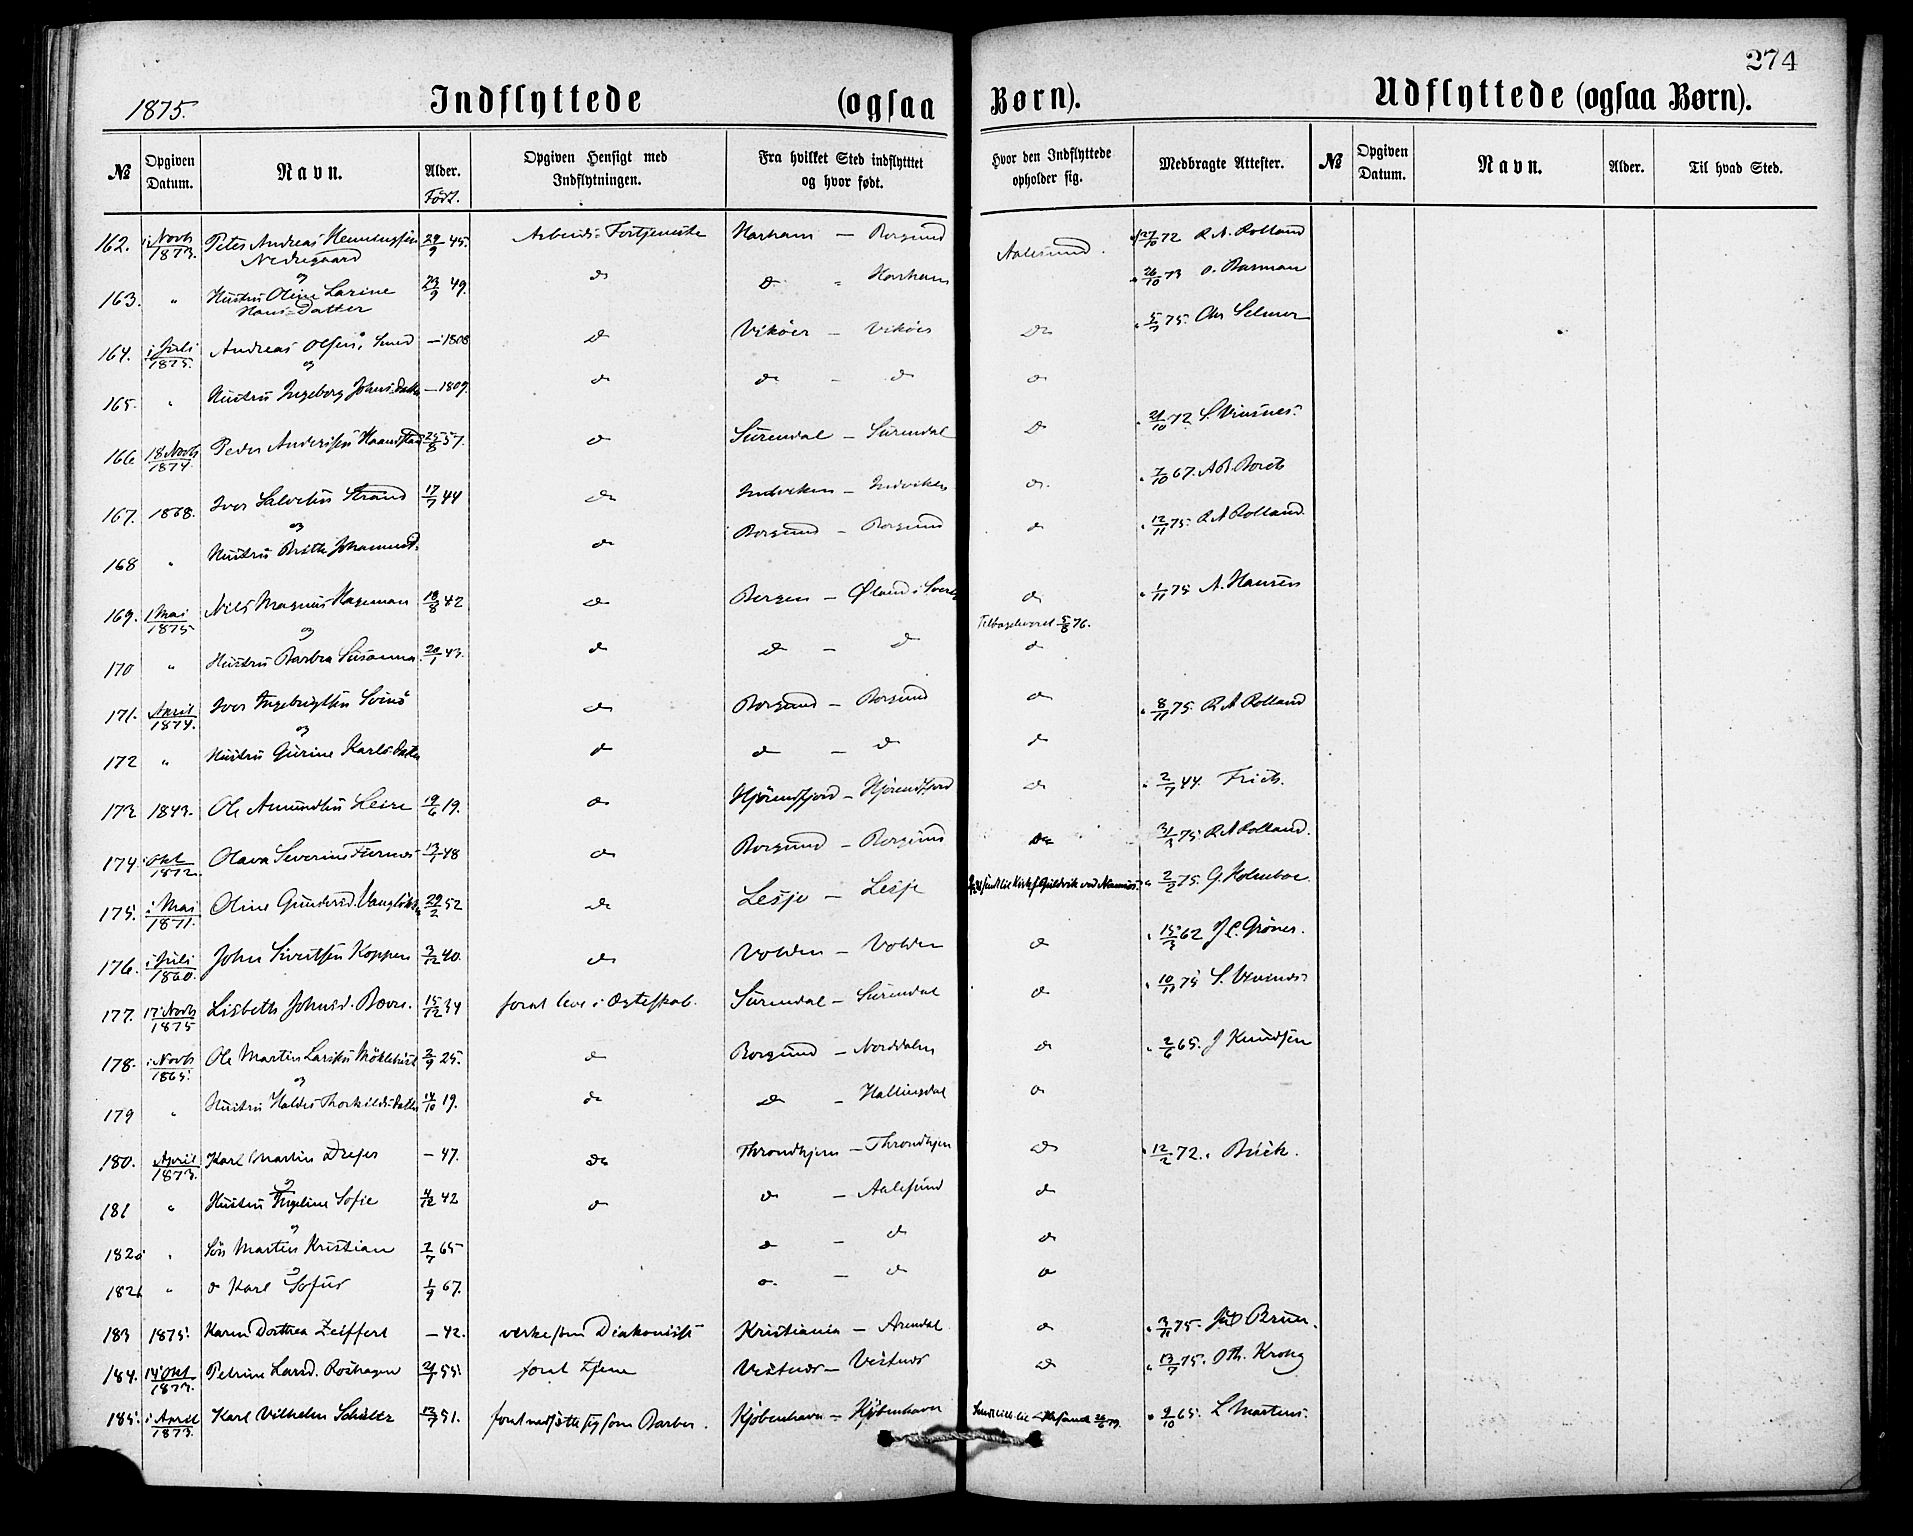 274
1875.
Indflyttede (ogsaa Børn).
Udflyttede (ogsaa Børn).
№ Opgiven Datum. Navn. Alder. Født. Opgiven Hensigt med Indflytningen. Fra hvilket Sted indflytttet og hvor født. Hvor den Indflyttede opholder sig. Medbragte Attester. № Opgiven Datum. Navn. Alder. Til hvad Sted.
162. i Novb 1873. Peter Andreas Henningsen Nedregaard 29/9 45. Arbeids-Fortjeneste Harham — Borgund Aalesund. 27/10 72 R A. Rolland
og
163. " Hustru Oline Larine Hans-Datter 23/9 49. do do " Harham " 26/10 73 o. Barman
164. i Juli 1875. Andreas Olsen, Smed — 1808 do Vikøer — Vikøer Do " 5/7 75. Chr Selmer
og
165. " Hustru Ingeborg Johns.datter — 1809. do do — do do
166 18 Novb 1874. Peder Andersen Haandstad 25/8 57. do Surendal — Surendal Do " 21/10 72 S. Vinsnes.
167. 1868. Iver Salvesen Strand 17/7 44 do Indviken — Indviken do. " 7/10 67. A B. Borch
og
168 " Hustru Brithe Johannesd. do Borgund — Borgund do " 12/11 75. R A Rolland.
169. 1 Mai 1875. Nils Magnus Hageman 18/8 42 do Bergen — Øland i Sverig do " 1/11 75 A. Hansen
og Tilbageleveret 5/8 76.
170 " Hustru Barbra Susanna 20/1 43. do do — do do
171. April 1874. Iver Ingebrigtsen Svinø do Borgund — Borgund do " 8/11 75. R A Rolland
og
172 " Hustru Gurine Karls.datter do do — do do
173 1843. Ole Amundsen Leire 19/6 19. do Hjørendfjord — Hjørendfjord do " 2/7 44. Frich.
174. i Okt 1872. Olava Severine Furnes 13/1 48 do Borgund — Borgund do 31/3 75. R A Rolland.
175. i Mai 1871. Oline Gundersd. 29/2 52 do Lesje — Lesje " 2/2 75. G. Holmboe.
176. i Juli 1860. John Sivertsen Koppen 3/12 40. do Volden — Volden do " 15/3 62 J C. Grøner.
177. 17 Novb 1875 Lisbeth Johnsd. Bævre. 15/12 34 forat leve i Ægteskab. Surendal — Surendal do " 10/11 75 S. Vinsnes
178. i Novb 1865. Ole Martin Larsen Møklebust 2/9 25. do Borgund — Norddalen do " 2/6 65. J Knudsen
og
179 " Hustru Haldis Thorkilds.datter 14/10 19. do do — Hallingdal do
180. April 1873. Karl Martin Dreyer — 47. do Throndhjem — Throndhjem do 12/2 72. Buck.
og
181 " Hustru Ingeline Sofie 4/12 42 do do — Aalesund do
og
182a " Søn Martin Kristian 2/7 65 do — do do
182b " do Karl Sofus 1/9 67. do — do do
183 1875. Karen Dorthea Zeiffert — 42. virke som Diakonisse Kristiania — Arendal. do " 3/11 75. Brun.
184. 14 Okt 1873. Petrine Larsd. Roshagen 21/1 55. forat tjene Vestnes — Vestnes do " 13/7 75. O Th. Krohg
185. i April 1873. Karl Vilhelm Schultz 12/7 51. forat nedsætte sig som Barber. Kjøbenhavn — Kjøbenhavn " 9/10 65. L Martens.